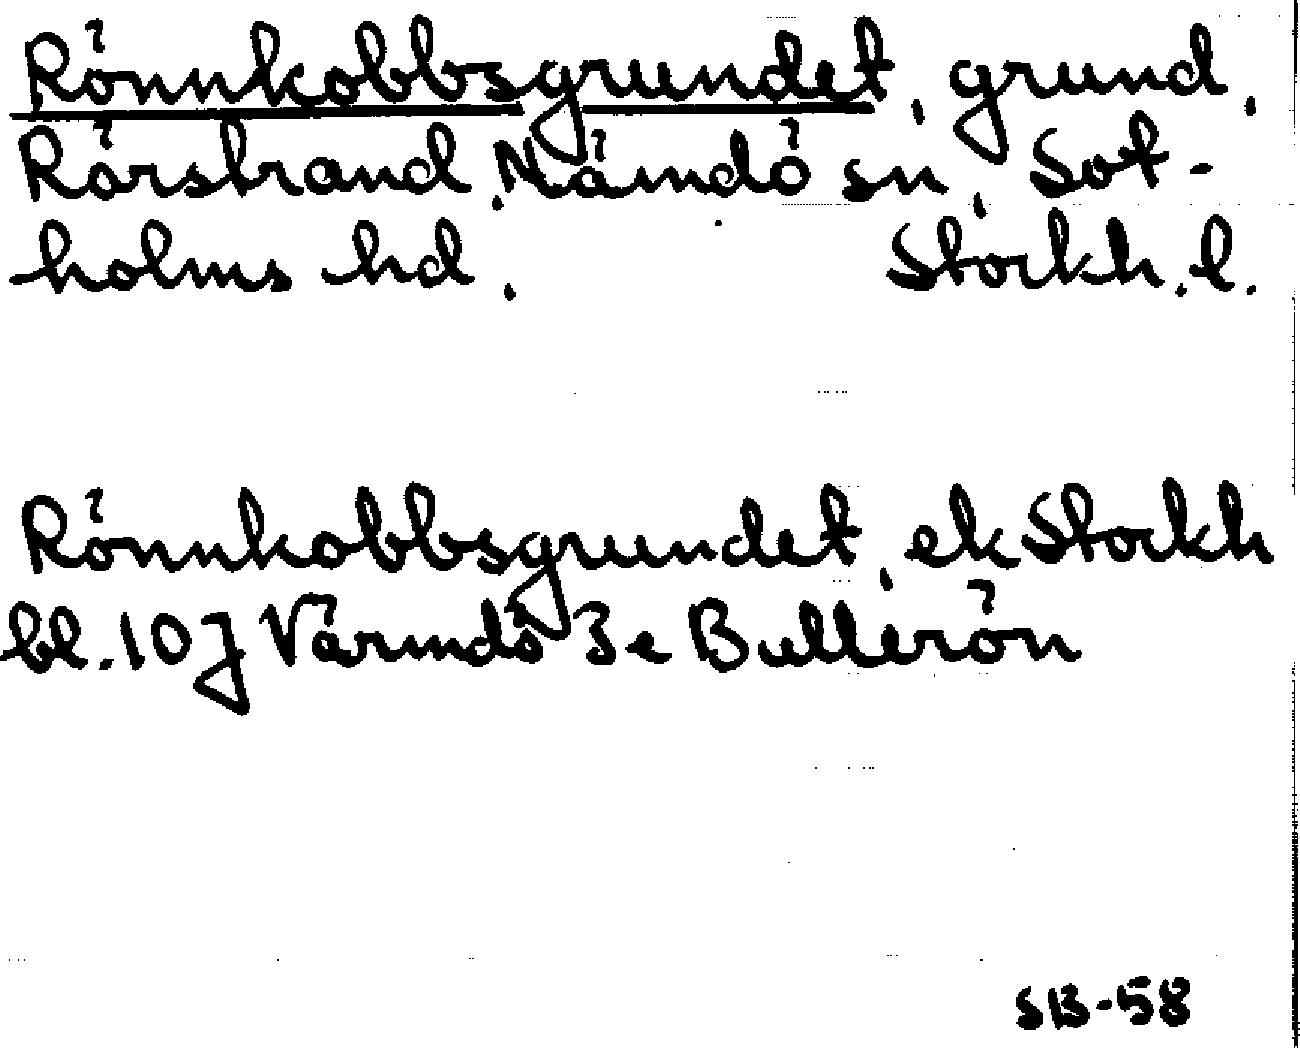 Rönnkobbsgrundet, grund.
Rörstrand, Nämdö sn, Sot-
holms hd. Stockh. l.
Rönnkobbsgrundet, ek Stockh
bl. 10J Värmdö 3e Bullerön
SB-58